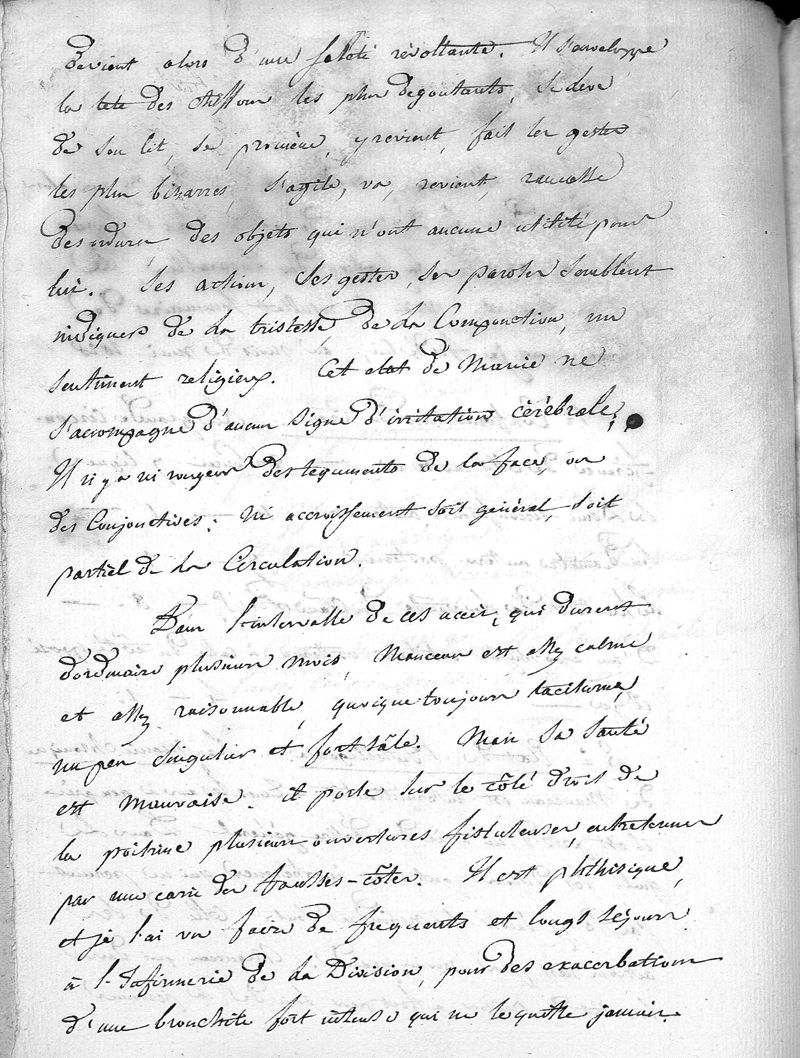 devient alors d'une saleté révoltante. Il s'enveloppe
la tete des chiffons les plus degoutants, se leve
de son lit, se promène, y revient, fait les gestes
les plus bizarres, s'agite, va, revient, ramasse
des objets qui n'ont aucune utilité pour
lui. Ses actions, Ses gestes, ses paroles semblent
indiquer de la tristesse, de la Componction, un
sentiment religieux. Cet etat de Manie ne
s'accompagne d'aucun signe d'irritation cérébrale;
Il n'y a ni rougeur des teguments de la face ou
des Conjonctives; ni accroissement soit général, soit
partiel de la Circulation.
Dans l'intervalle de ces accès, qui durent
d'ordinaire plusieurs mois, Manceau est assez calme
et assez raisonnable, quoique toujours taciturne,
un peu singulier et fort sâle. Mais sa santé
est Mauvaise. il porte sur le côté droit de
la poitrine plusieurs ouvertures fistuleuses, entretenues
par une carie des fausses-côtes. Il est phthisique,
et je l'ai vu faire de frequents et longs séjours
à l'Infirmerie de la Division, pour des exacerbations
d'une bronchite fort intense qui ne le quitte jamais.